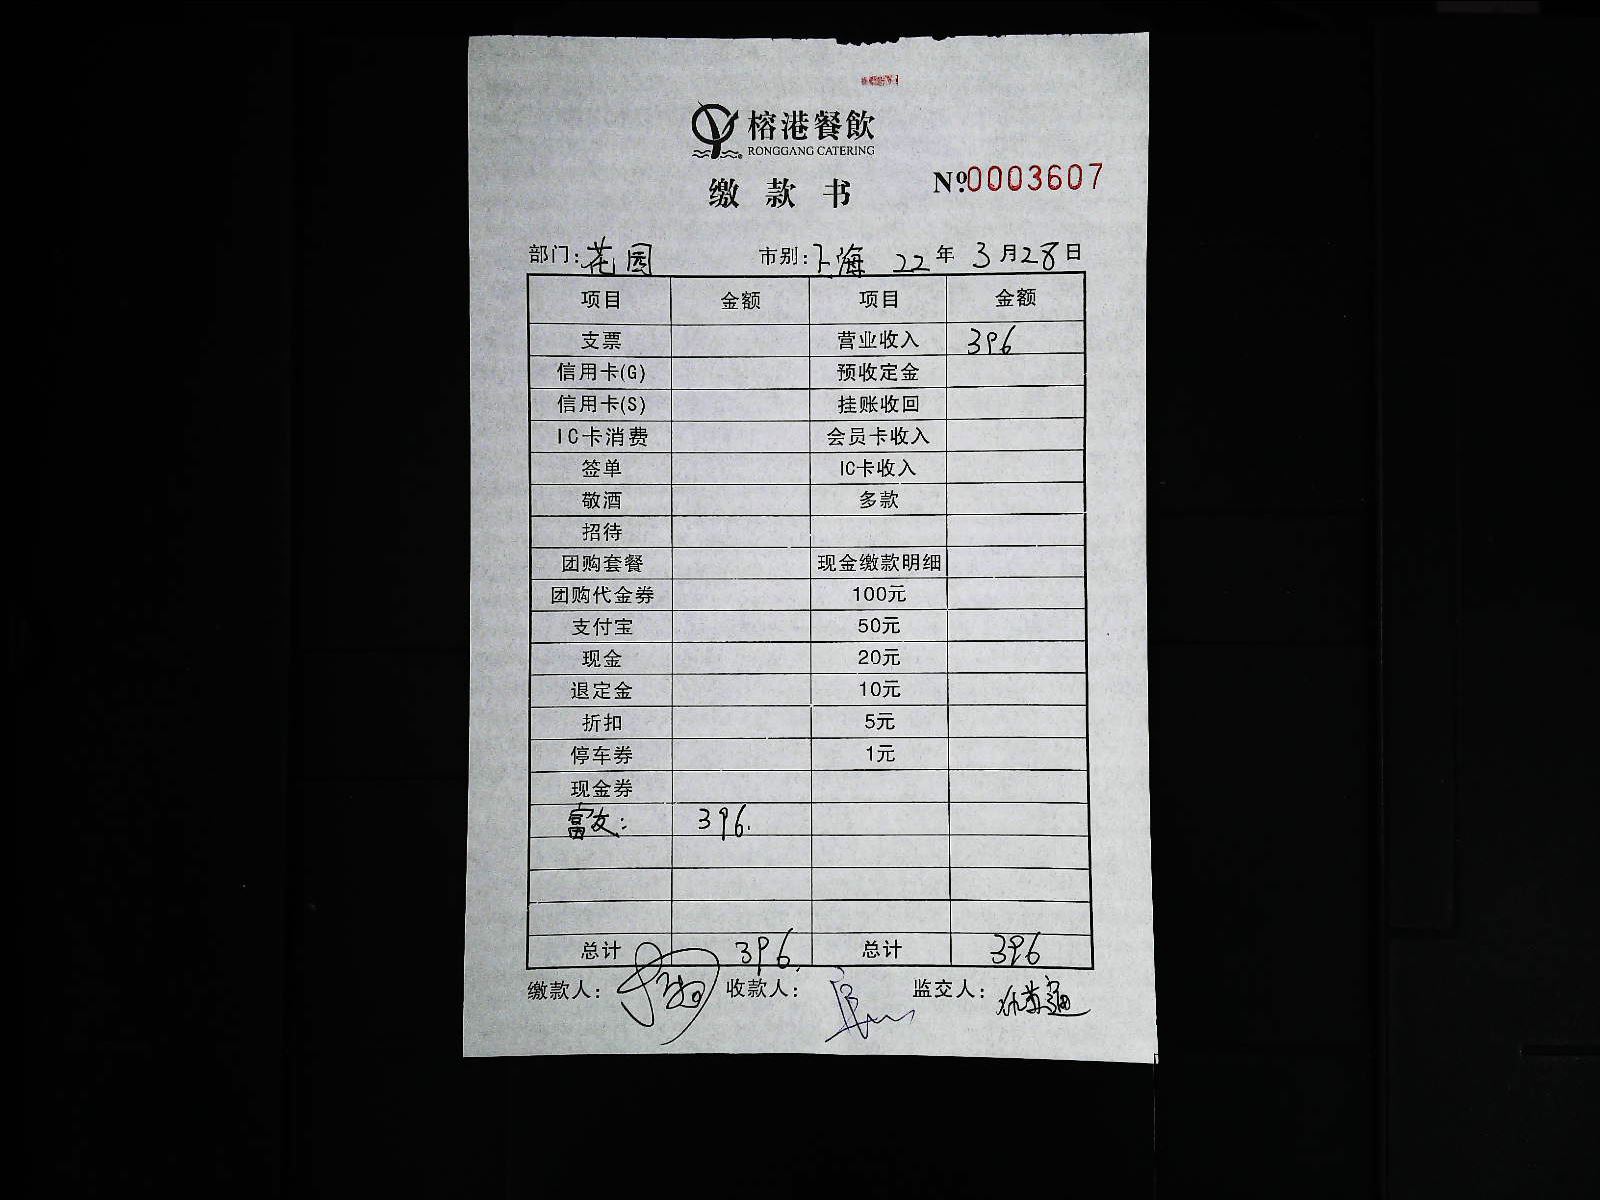 榕港餐飲
RONGGANG CATERING
缴款书
№0003607
部门:花园 市别:上海 22年3月28日
项目 金额 项目 金额
支票 营业收入 396
信用卡(G) 预收定金
信用卡(S) 挂账收回
IC卡消费 会员卡收入
签单 IC卡收入
敬酒 多款
招待
团购套餐 现金缴款明细
团购代金券 100元
支付宝 50元
现金 20元
退定金 10元
折扣 5元
停车券 1元
现金券
富友: 396.
总计 396. 总计 396
缴款人: 收款人: 监交人: